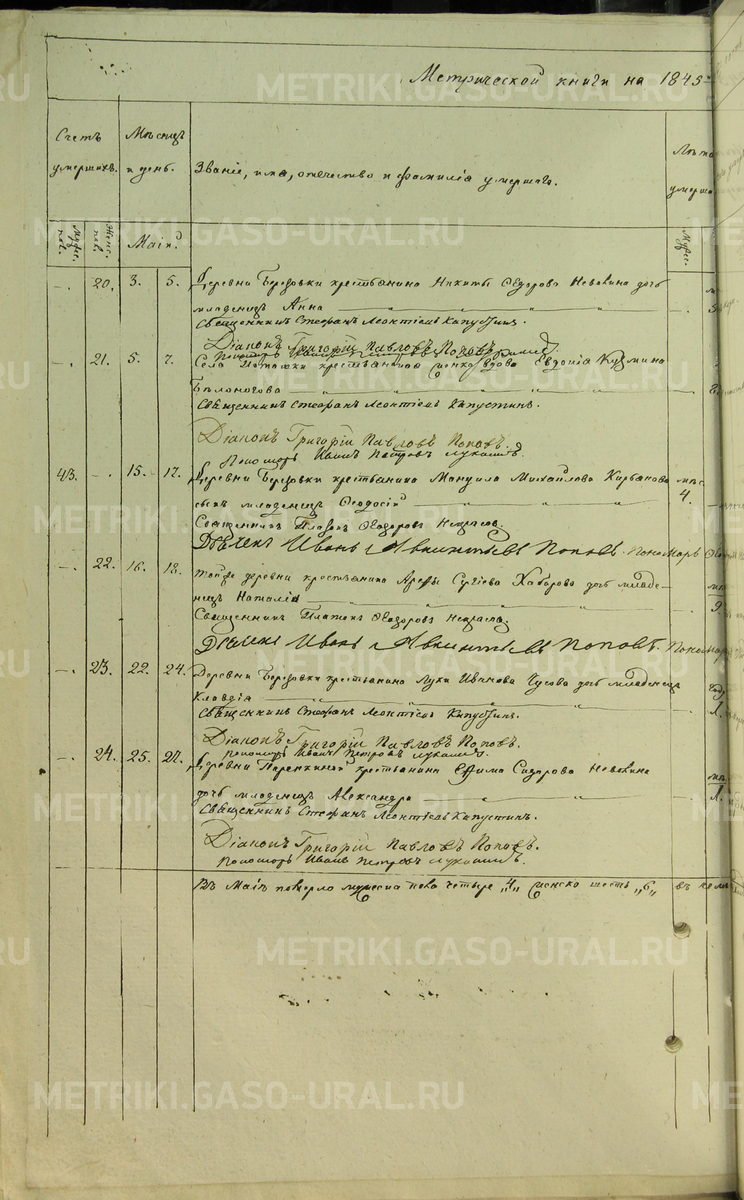 Метрической книги на 1845
Счетъ умершихъ.
Мѣсяцъ и день.
Званіе, имя, отечество и фамилія умершаго.
Лѣта умерша
Муж. пол.
Женс. пол.
Маій.
Мужес.
-. 20. 3. 5. Деревни Березовки крестьянина Никиты Ѳедорова Невъяна дочь
младенецъ Анна
Священникъ Стефанъ Леонтіевъ Капустинъ.
Діаконъ Григорій Павловъ Поповъ.
-. 21. 5. 7. Села крестьянская женка вдова Евдокія Кузмина
Бѣлоногова
Священникъ Стефанъ Леонтіевъ Капустинъ.
Діаконъ Григорій Павловъ Поповъ.
Пономарь Иванъ Петровъ Лукашинъ.
43. -. 15. 17. Деревни Березовки крестьянина Мануила Михайлова мѣс.
сынъ младенецъ Ѳеодосій 4.
Священникъ Платонъ Ѳеодоровъ Некрасовъ.
Дьячекъ Иванъ Авкинтьевъ Поповъ. Пономарь
-. 22. 16. 18. Тойже деревни крестьянина Арефы Сергіева Хабарова дочь младе-
нецъ Наталія 9.
Священникъ Платонъ Ѳеодоровъ Некрасовъ.
Дьячекъ Иванъ Авкинтьевъ Поповъ. Понома
-. 23. 22. 24. Деревни Березовки крестьянина Луки Иванова Чусова дочь младенецъ
Клавдія
Священникъ Стефанъ Леонтіевъ Капустинъ.
Діаконъ Григорій Павловъ Поповъ.
Пономарь Иванъ Петровъ Лукашинъ.
-. 24. 25. 27. Деревни крестьянина Ефима Сидорова Невъяна
дочь младенецъ Александра
Священникъ Стефанъ Леонтіевъ Капустинъ.
Діаконъ Григорій Павловъ Поповъ.
Пономарь Иванъ Петровъ Лукашинъ.
Въ Маіѣ померло мужеска пола четыре „4„ женска шесть „6„
METRIKI.GASO-URAL.RU